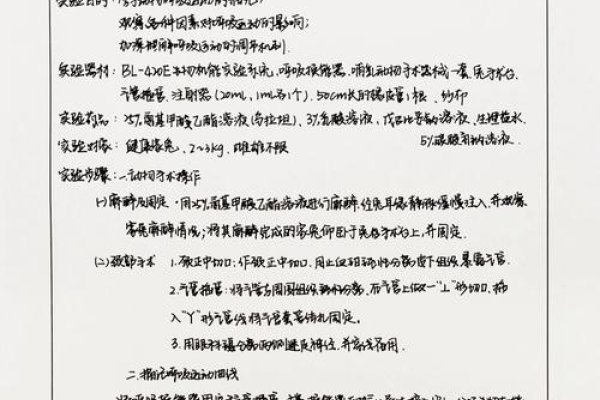 实验目的：
观察各种因素对呼吸运动的影响；
加深理解呼吸运动的调节机制.
实验器材：BL-420E生物机能实验系统，呼吸换能器，哺乳动物手术器械一套，兔手术台，
气管插管，注射器(20mL，1mL各1个)，50cm长的橡皮管1根，纱布
实验药品：25%氨基甲酸乙酯溶液(乌拉坦)，3%乳酸溶液，戊巴比妥钠溶液，生理盐水，
5%尼可刹米溶液.
实验对象：健康家兔，2~3kg，雌雄不限
实验步骤：一.动物手术操作
(1)麻醉及固定·用25%氨基甲酸乙酯溶液进行麻醉，经兔耳缘静脉缓慢注入，并观察
家兔麻醉情况；将其麻醉完成的家兔仰卧于兔手术台上，并固定.
(2)颈部手术 1.颈正中切口：作颈正中切口，用止血钳钝性分离皮下组织暴露气管.
2.气管插管：将气管与周围组织分离，在气管上做一"⊥"形切口，插
入"Y"形气管 将气管套管结扎固定.
3.用 分离两侧迷走神经，并穿线备用.
二.描记呼吸运动曲线